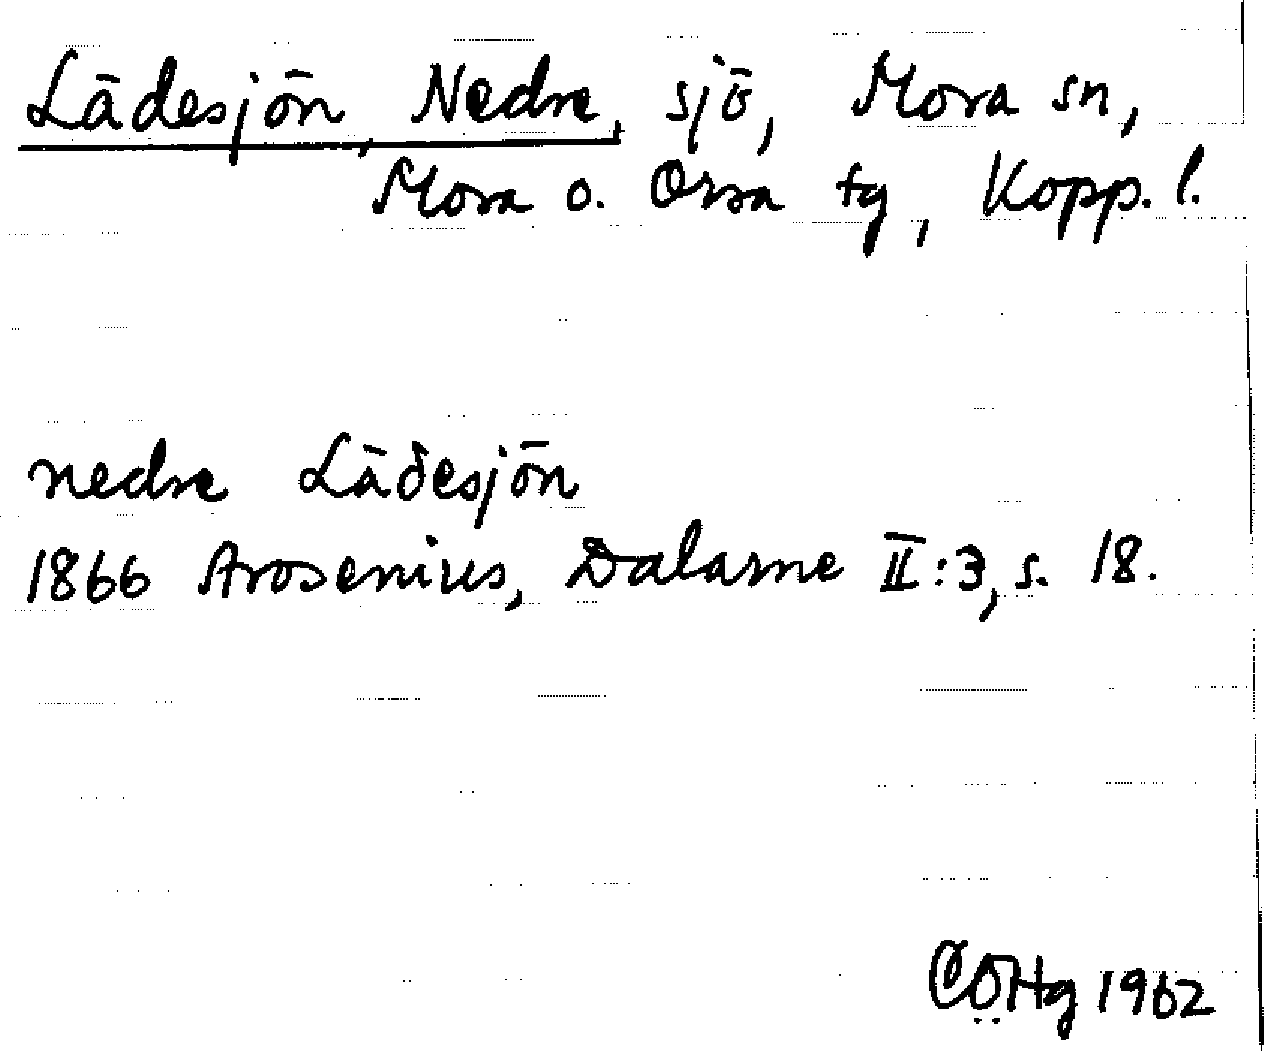 Lädesjön, Nedre, sjö, Mora sn,
Mora o. Orsa tg, Kopp. l.
nedre Lädesjön
1866 Arosenius, Dalarne II:3, s. 18.
CÖHg 1962